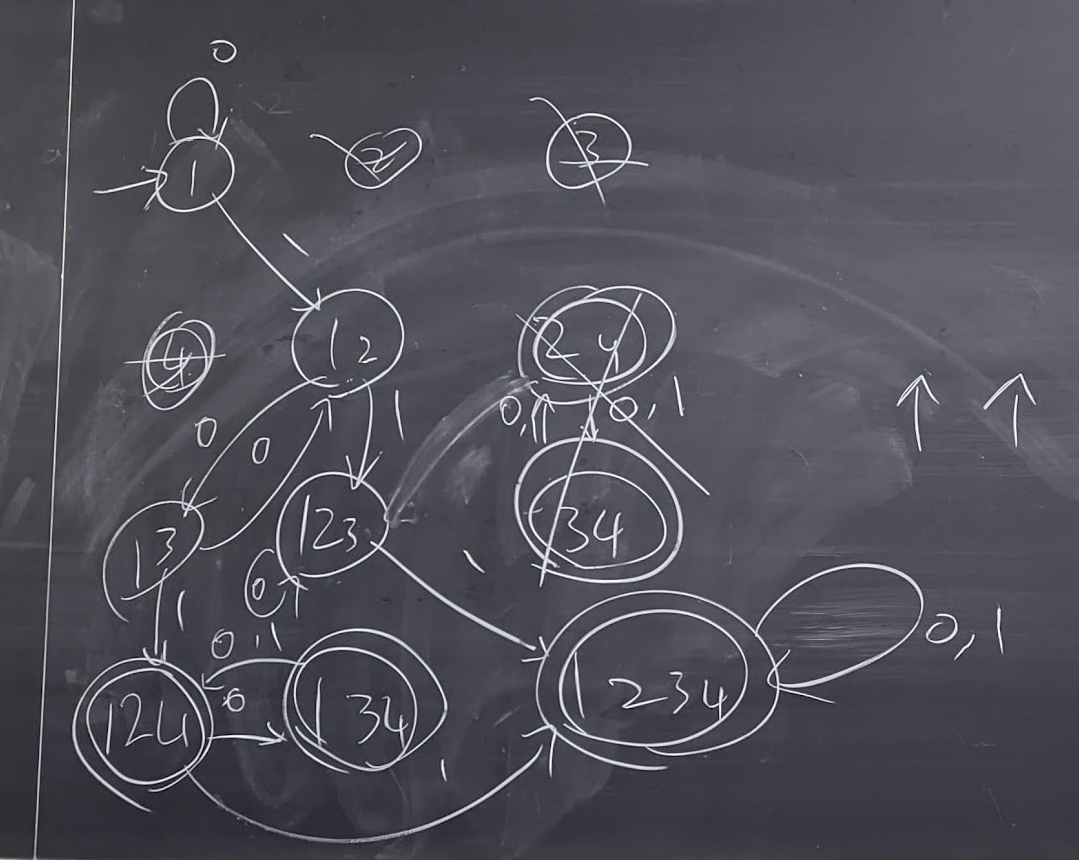 0
1 2 3
1
4 12 24
0 0 1 0,1 0,1
13 123 34
1 0 1
0,1 0,1
124 0 134 1234
1